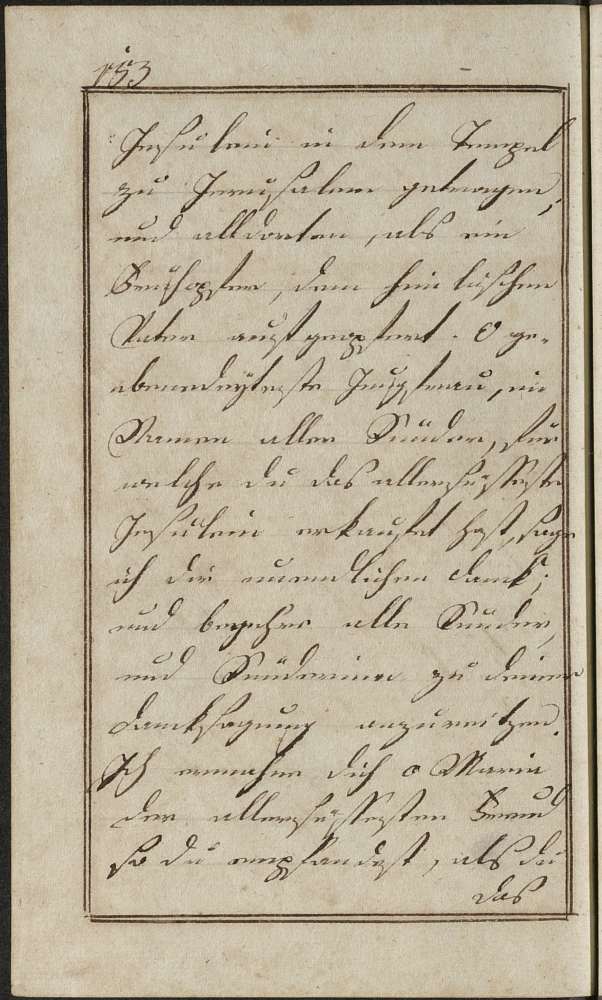 153
Jesulein in dem Tempel
zu Jerusalem getragen,
und alldorten, als ein
dem himlischen
Vater aufgeopfert. O ge-
benedeyteste Jungfrau, im
Namen aller Sünder, für
welche du das allersüsseste
Jesulein erkaufet hast, sage
ich dir unendlichen Danck;
und begehre alle Sünder,
und Sünderinen zu deiner
Dancksagung anzureitzen.
Ich ermahne dich o Maria
der allersüssesten Freud
so du empfandest, als du
das